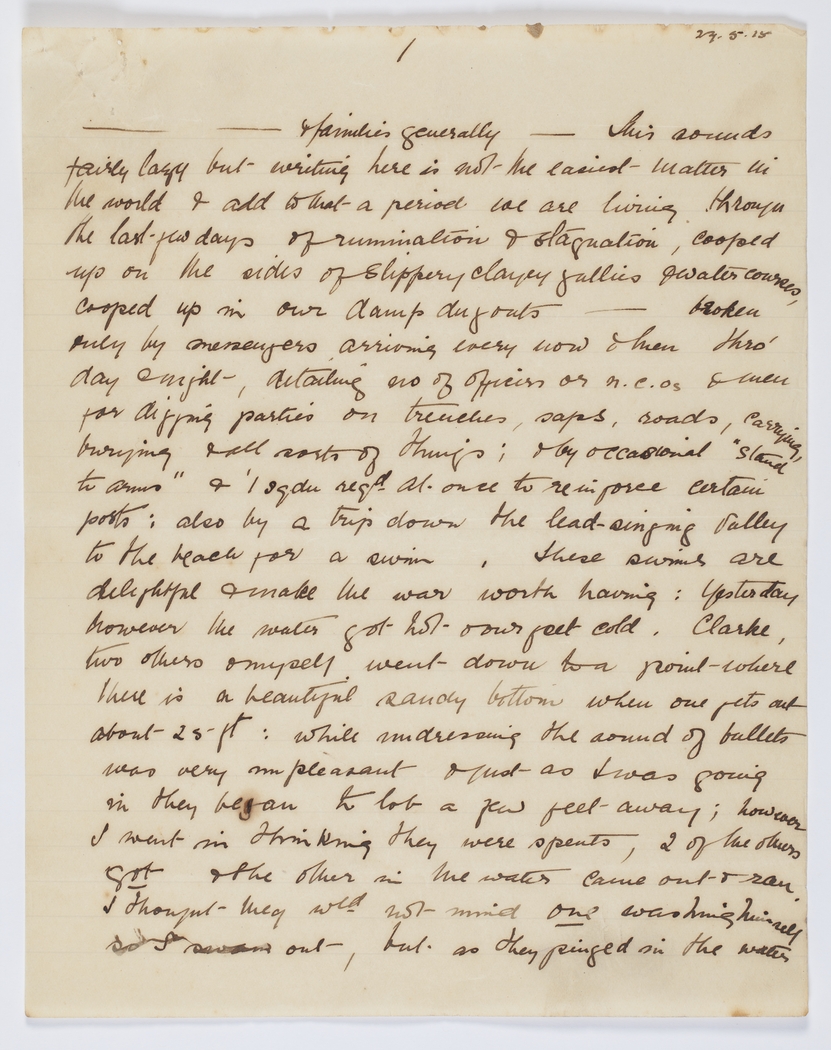 27.5.15
1
— — & families generally — This sounds
fairly lazy but writing here is not the easiest matter in
the world & add to that a period we are living through
the last few days of rumination & stagnation, cooped
up on the sides of slippery clayey gullies & watercourses,
cooped up in our damp dugouts — broken
only by messengers arriving every now & then thro'
day & night, detailing no of officers or n.c.os & men
for digging parties on trenches, saps, roads, carrying,
burying & all sorts of things; & by occasional "stand
to arms" & '1 sqdn reqd at once to reinforce certain
posts: also by a trip down the lead-singing valley
to the beach for a swim, these swims are
delightful & make the war worth having: Yesterday
however the water got hot & our feet cold. Clarke,
two others & myself went down to a point where
there is a beautiful sandy bottom when one gets out
about 25 ft: while undressing the sound of bullets
was very unpleasant & just as I was going
in they began to lob a few feet away; however
I went in thinking they were spents, 2 of the others
got & the other in the water came out & ran.
I thought they wld not mind one washing himself
so I swam out, but as they pinged in the water